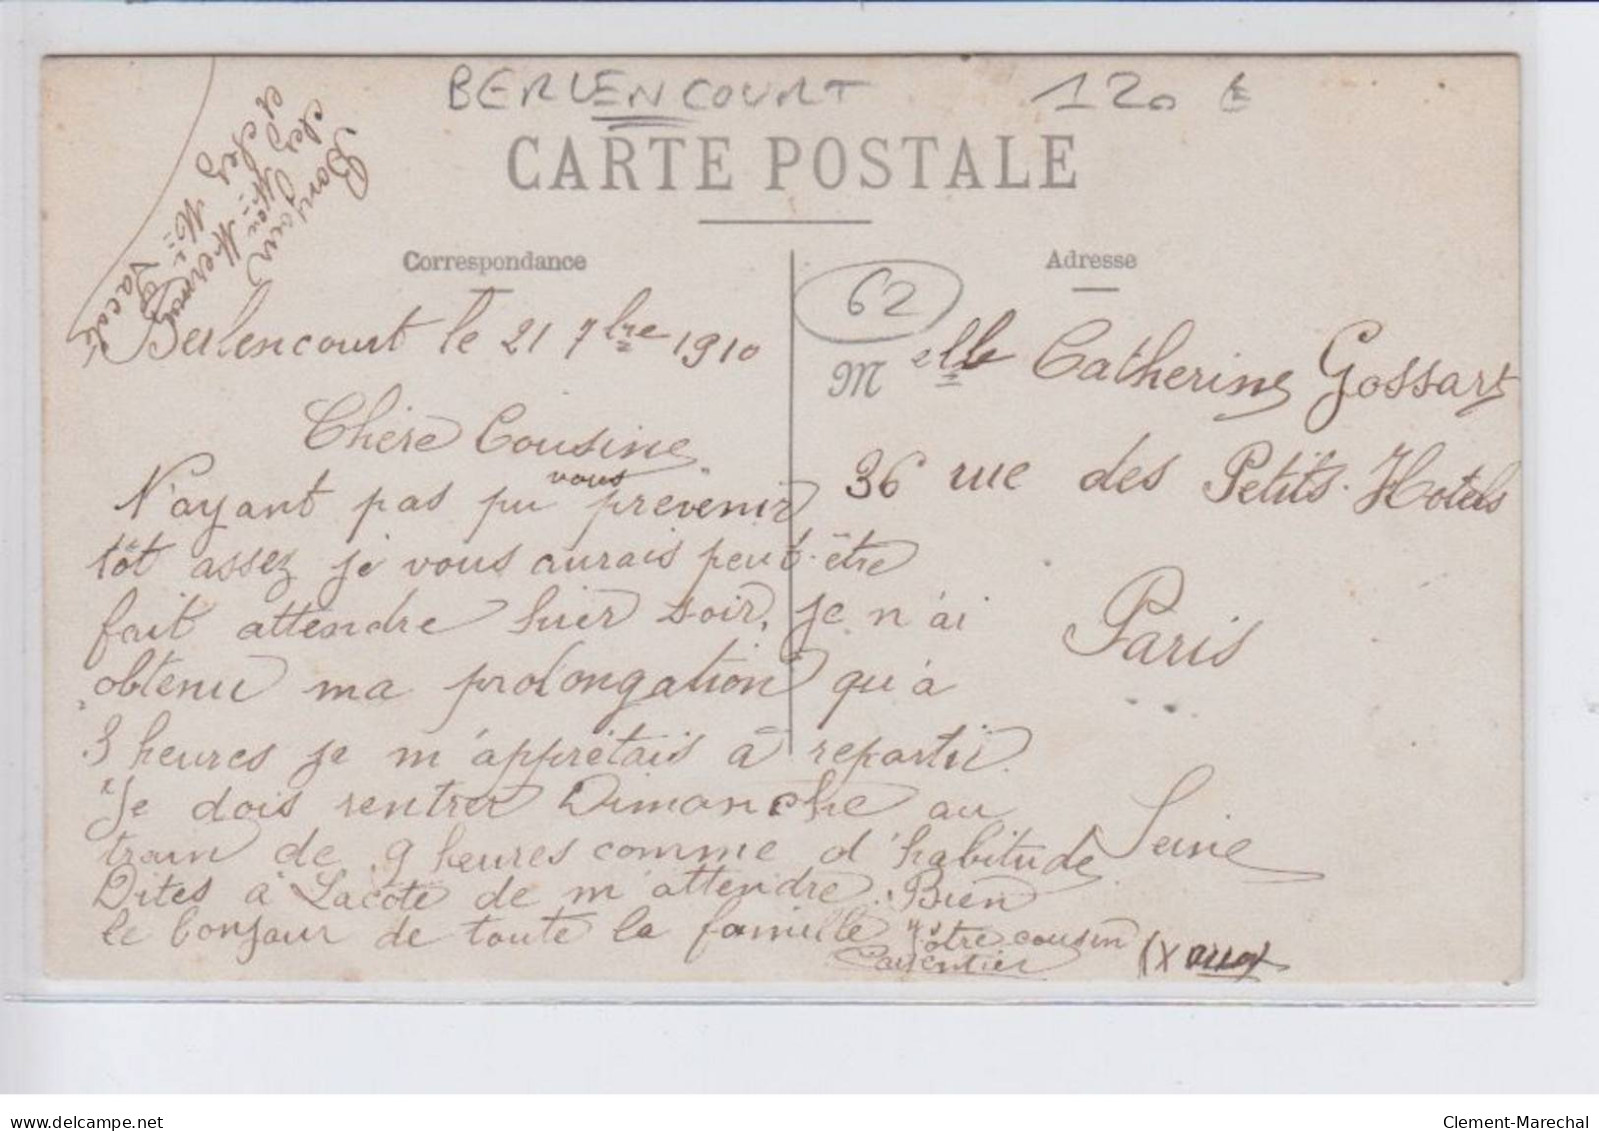 BERLENCOURT 120 €
CARTE POSTALE
Correspondance
Adresse
62
Bonjour
chez
et chez
Berlencourt le 21 7bre 1910
Chère Cousine
N'ayant pas pu vous prévenir
tôt assez je vous aurais peut-être
fait attendre hier soir, je n'ai
obtenu ma prolongation qu'à
3 heures je m'apprêtais à repartir.
Je dois rentrer Dimanche au
train de 9 heures comme d'habitude
Dites à Lacôte de m'attendre. Bien
le bonjour de toute la famille
Votre cousin
Carpentier
Melle Catherine Gossart
36 rue des Petits-Hotels
Paris
Seine
delcampe.net
Clement-Marechal